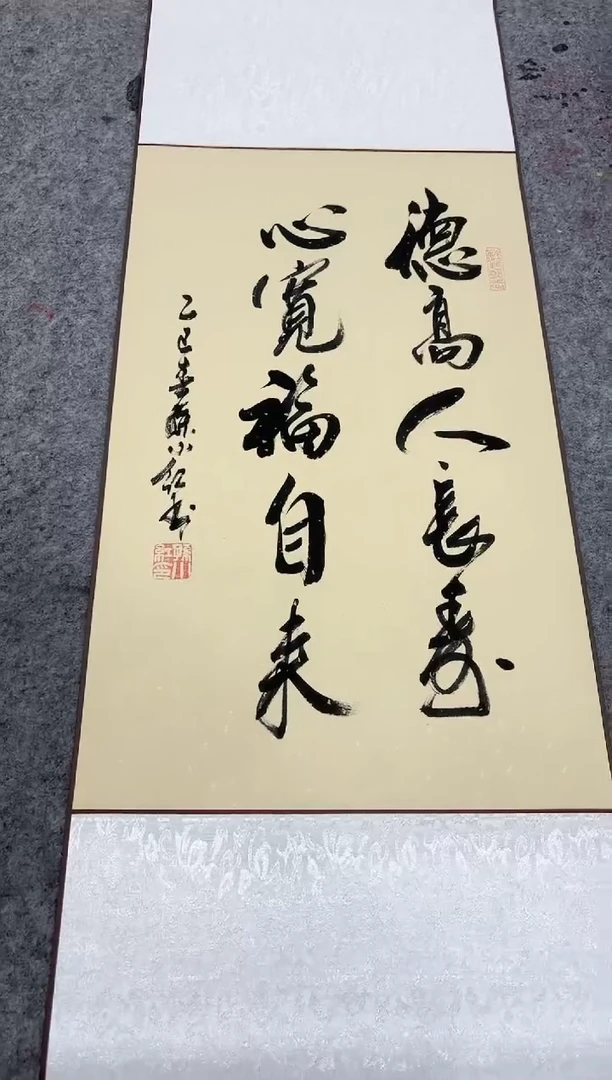 德高人長壽
心寬福自来
乙巳春蘇小紅书